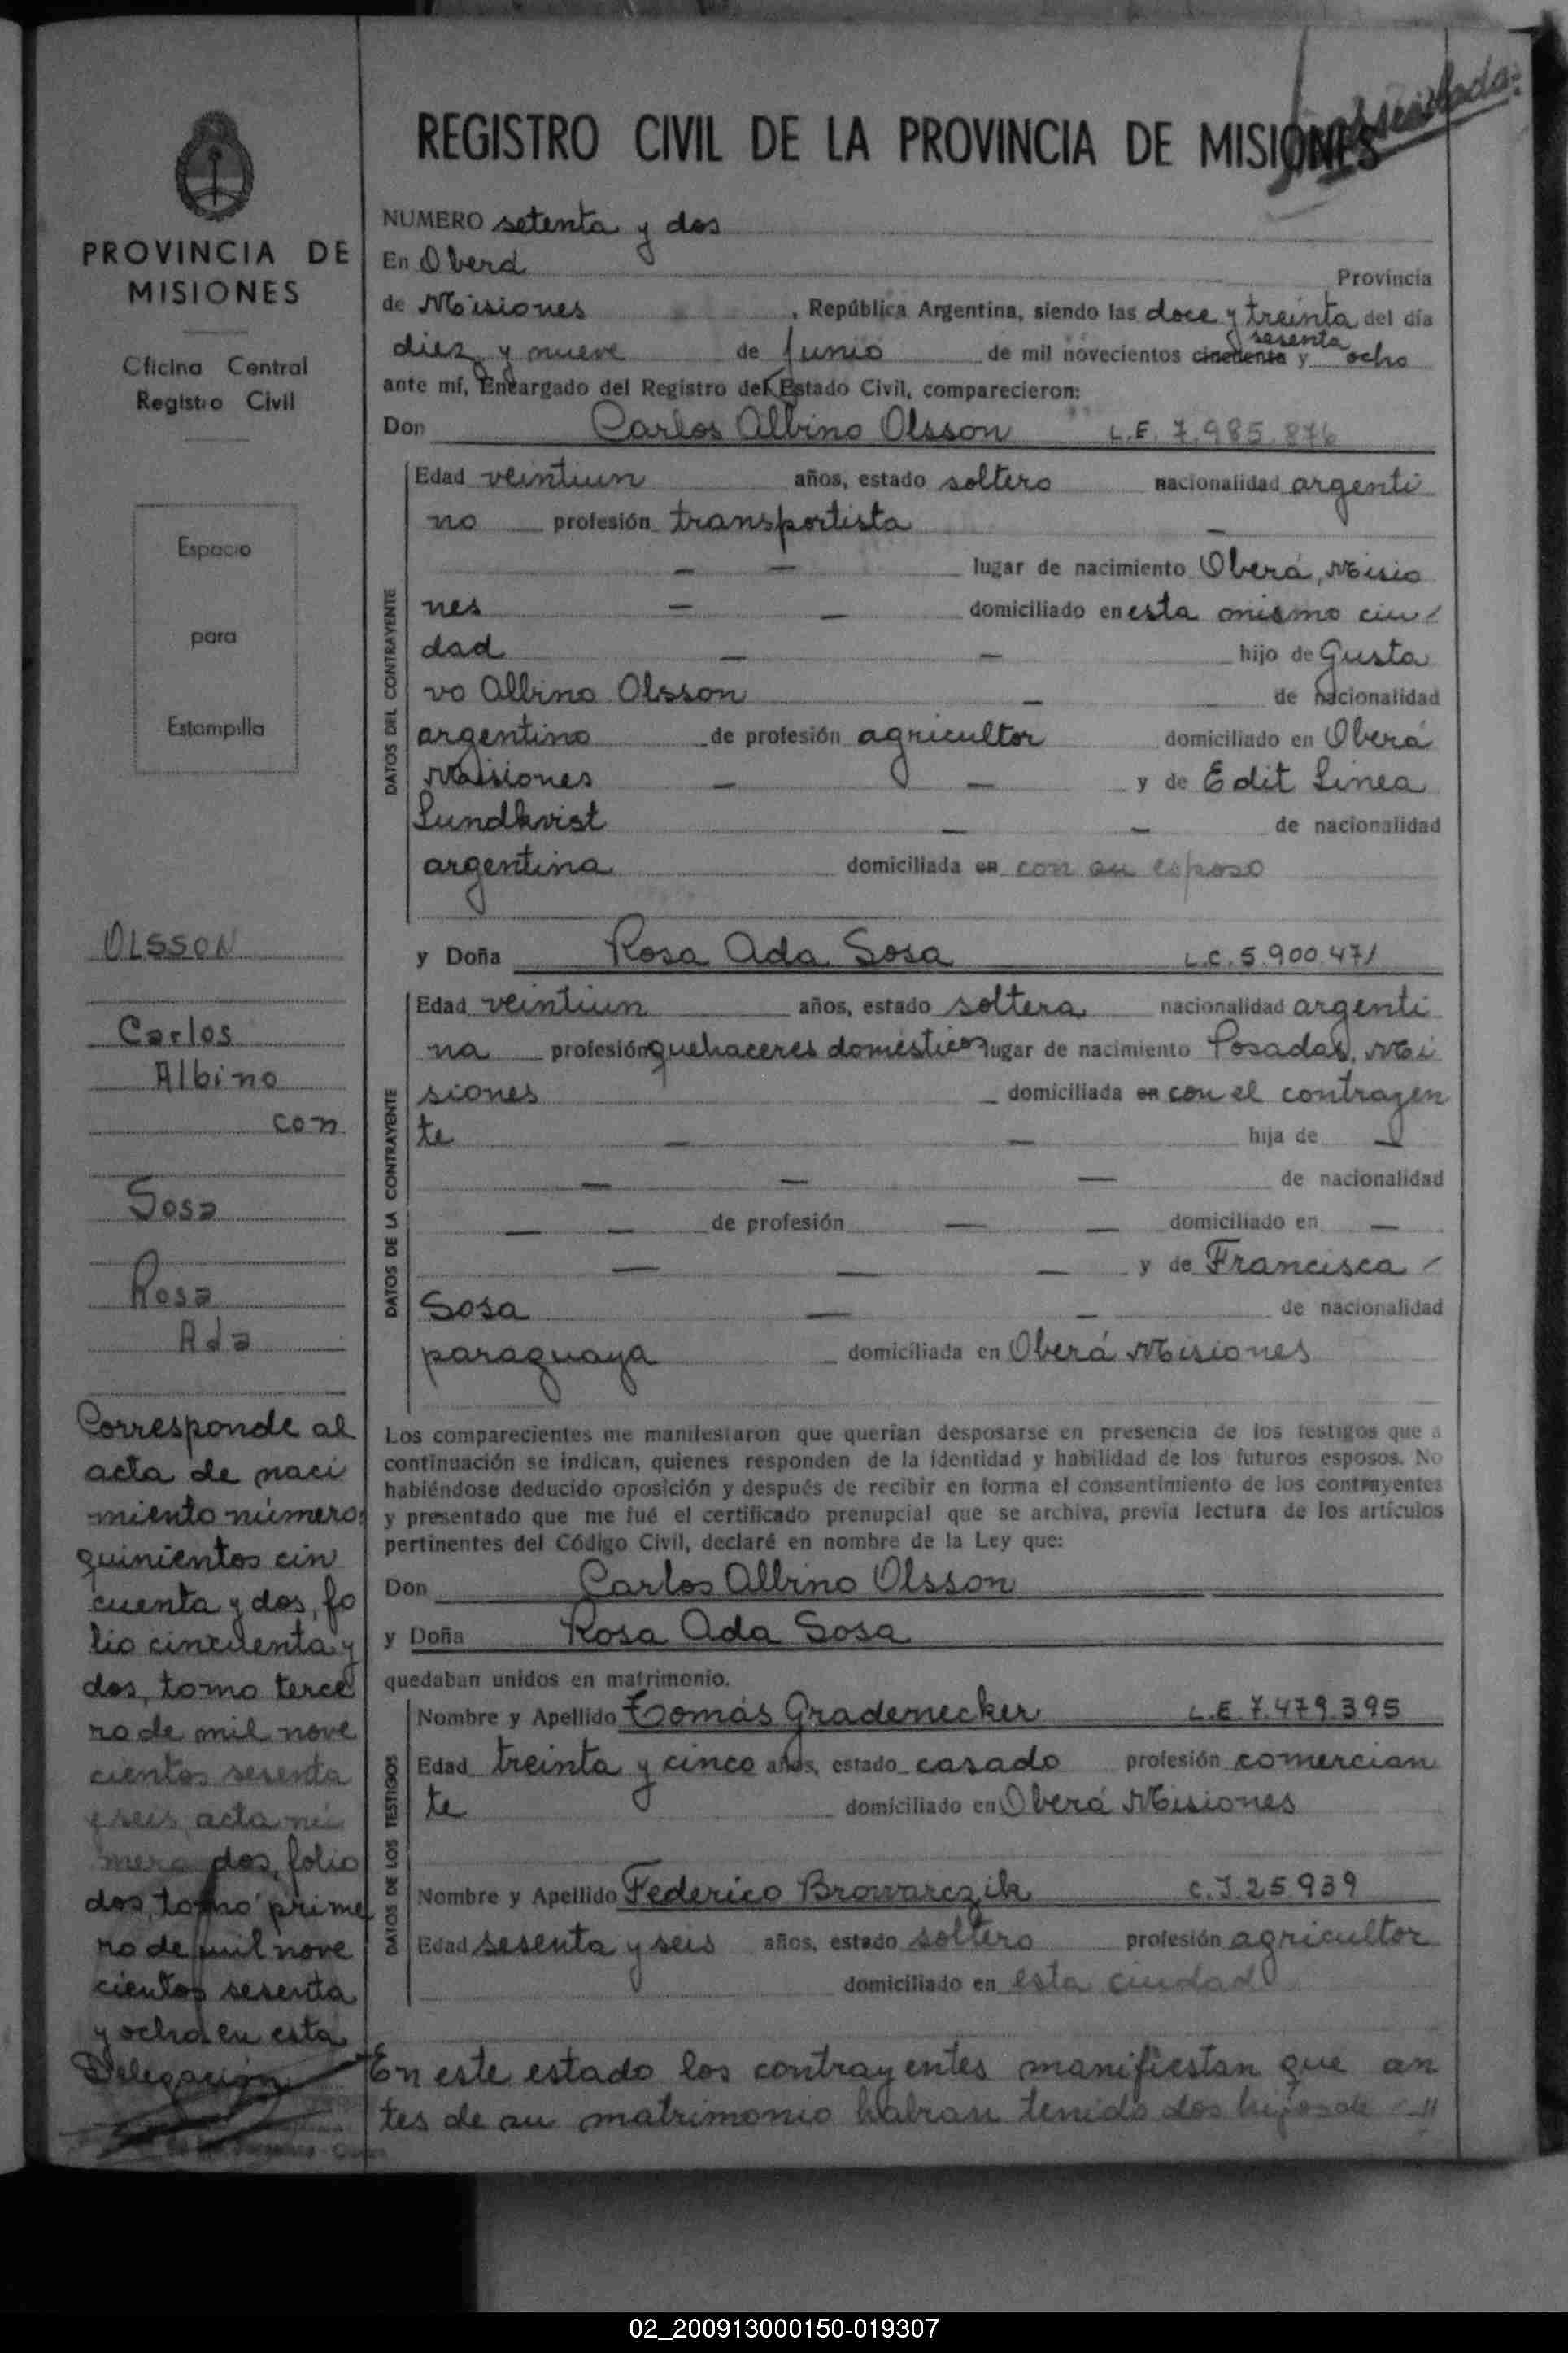 REGISTRO CIVIL DE LA PROVINCIA DE MISIONES
PROVINCIA DE
MISIONES
Oficina Central
Registro Civil
Espacio
para
Estampilla
OLSSON
Carlos
Albino
con
Sosa
Rosa
Ada
Corresponde al
acta de naci
miento número
quinientos cin
cuenta y dos, fo
lio cincuenta y
dos, tomo terce
ro de mil nove
cientos sesenta
y seis, acta nú
mero dos, folio
dos, tomo prime
ro de mil nove
cientos sesenta
y ocho en esta
Delegación
NUMERO setenta y dos
En Oberá Provincia
de Misiones , República Argentina, siendo las doce y treinta del día
diez y nueve de Junio de mil novecientos cincuenta sesenta y ocho
ante mí, Encargado del Registro del Estado Civil, comparecieron:
Don Carlos Albino Olsson L.E. 7.985.876
DATOS DEL CONTRAYENTE
Edad veintiun años, estado soltero nacionalidad argenti
no profesión transportista —
— — lugar de nacimiento Oberá, Misio
nes — — domiciliado en esta mismo ciu
dad — — hijo de Gusta
vo Albino Olsson — de nacionalidad
argentino de profesión agricultor domiciliado en Oberá
Misiones — — y de Edit Linea
Lundkvist — — de nacionalidad
argentina domiciliada en con su esposo
y Doña Rosa Ada Sosa L.C. 5.900.471
DATOS DE LA CONTRAYENTE
Edad veintiun años, estado soltera nacionalidad argenti
na profesión quehaceres domésticos lugar de nacimiento Posadas, Mi
siones domiciliada en con el contrayen
te — — hija de —
— — — de nacionalidad
— — de profesión — — domiciliado en —
— — — y de Francisca
Sosa — — de nacionalidad
paraguaya domiciliada en Oberá Misiones
Los comparecientes me manifestaron que querían desposarse en presencia de los testigos que a
continuación se indican, quienes responden de la identidad y habilidad de los futuros esposos. No
habiéndose deducido oposición y después de recibir en forma el consentimiento de los contrayentes
y presentado que me fué el certificado prenupcial que se archiva, previa lectura de los artículos
pertinentes del Código Civil, declaré en nombre de la Ley que:
Don Carlos Albino Olsson
y Doña Rosa Ada Sosa
quedaban unidos en matrimonio.
DATOS DE LOS TESTIGOS
Nombre y Apellido Tomás Gradenecker L.E. 7.479.395
Edad treinta y cinco años, estado casado profesión comercian
te domiciliado en Oberá Misiones
Nombre y Apellido Federico Browarczik C.I. 25.939
Edad sesenta y seis años, estado soltero profesión agricultor
domiciliado en esta ciudad
En este estado los contrayentes manifiestan que an
tes de su matrimonio habían tenido dos hijos de
02_200913000150-019307